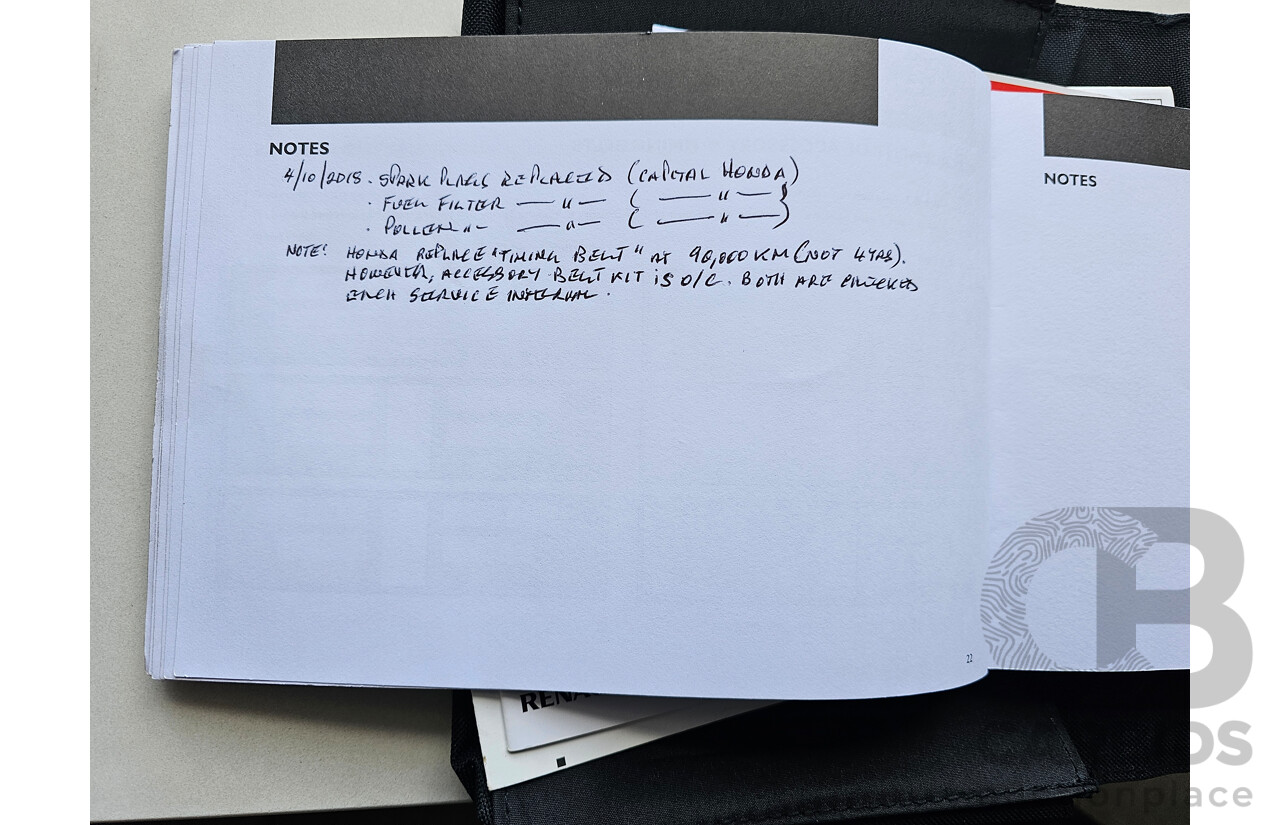 NOTES
4/10/2018. SPARK PLUGS REPLACED (CAPITAL HONDA)
· FUEL FILTER — " — ( — " — )
· POLLEN "– — " — ( — " — )
NOTE: HONDA REPLACE "TIMING BELT" AT 90,000 KM (NOT 4 YRS).
HOWEVER, ACCESSORY BELT KIT IS O/C. BOTH ARE CHECKED
EACH SERVICE INTERVAL.
22
NOTES
RENA
CB
OS
onplace